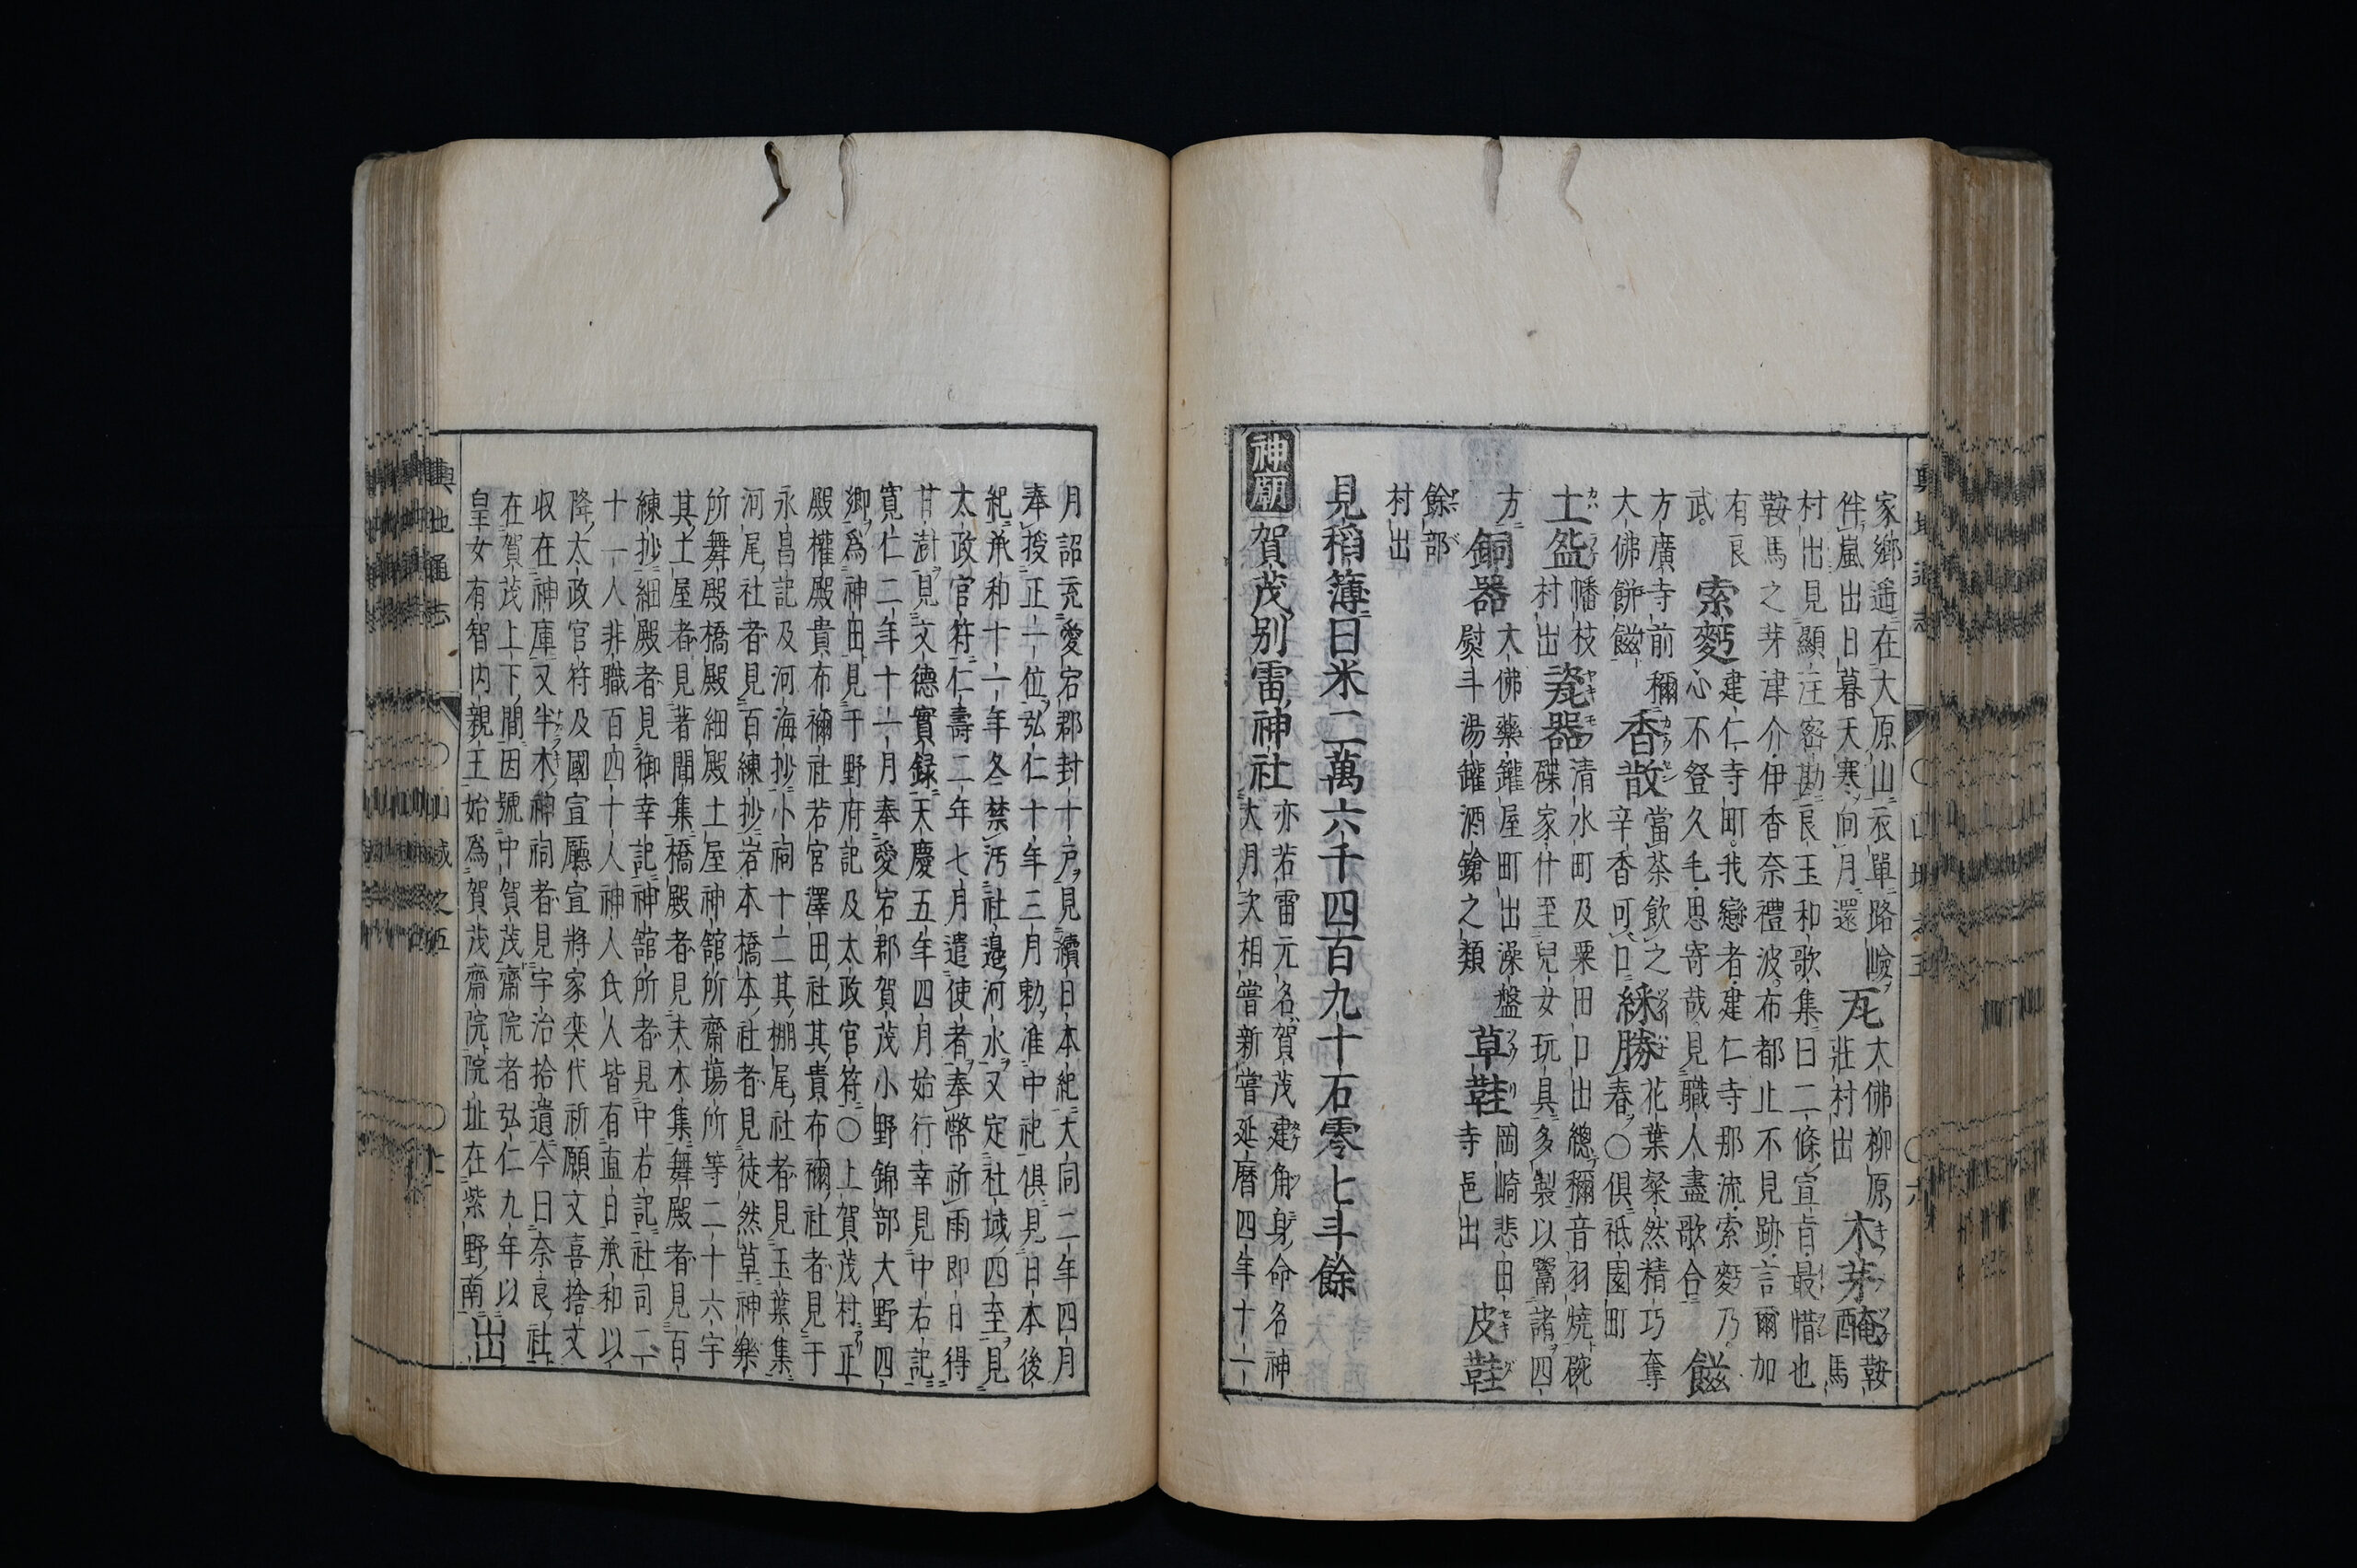 家郷遥在大原山衣單路嶮
伴嵐出日暮天寒向月還
瓦
大佛柳原
莊村出
木芽醃
鞍馬
村出見顯注密勘艮玉和歌集曰二條宣旨最惜也
鞍馬之芽津介伊香奈禮波布都止不見跡言爾加
有艮
武
索麪
建仁寺町我戀者建仁寺那流索麪乃
心不登久毛思寄哉見職人盡歌合
餻
方廣寺前稱
大佛餅餻
香散
當茶飲之
辛香可口
綵勝
花葉粲然精巧奪
春〇俱祗園町
土瓫
幡枝
村出
瓷器
清水町及粟田口出總稱音羽燒碗
碟家什至兒女玩具多製以鬻諸四
方
銅器
大佛藥鑵屋町出澡盤
熨斗湯鑵酒鎗之類
草鞋
岡崎悲田
寺邑出
皮鞋
餘部
村出
見稻簿曰米二萬六千四百九十石零七斗餘
神廟
賀茂別雷神社
亦若雷元名賀茂建角身命名神
大月次相嘗新嘗延曆四年十一
月詔充愛宕郡封十戸見續日本紀大同二年四月
奉授正一位弘仁十年三月勅准中祀俱見日本後
紀承和十一年冬禁汚社邉河水又定社域四至見
太政官符仁壽二年七月遣使者奉幣祈雨即日得
甘澍見文德實録天慶五年四月始行幸見中右記
寛仁二年十一月奉愛宕郡賀茂小野錦部大野四
郷爲神田見于野府記及太政官符〇上賀茂村正
殿權殿貴布禰社若宮澤田社其貴布禰社者見于
永昌記及河海抄小祠十二其棚尾社者見玉葉集
河尾社者見百練抄岩本橋本社者見徒然草神樂
所舞殿橋殿細殿土屋神舘所齋塲所等二十六宇
其土屋者見著聞集橋殿者見夫木集舞殿者見百
練抄細殿者見御幸記神舘所者見中右記社司二
十一人非職百四十人神人氏人皆有直日承和以
降太政官符及國宣廳宣將家奕代祈願文喜捨文
収在神庫又半木神祠者見宇治拾遺今曰奈良社
在賀茂上下間因號中賀茂齋院者弘仁九年以
皇女有智内親王始爲賀茂齋院院址在紫野南出